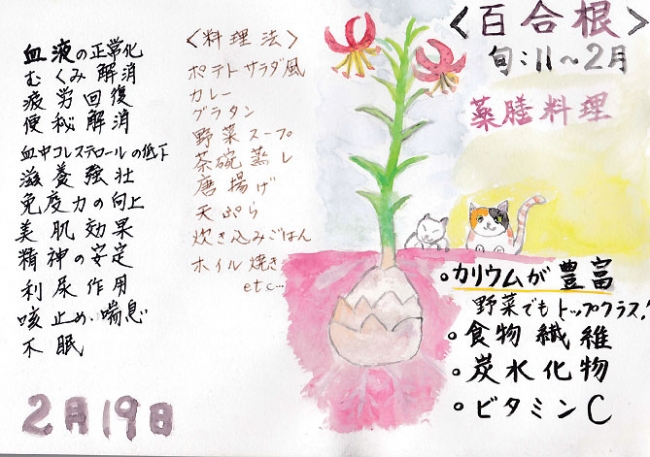 <百合根>
旬:11〜2月
薬膳料理
・カリウムが豊富
野菜でもトップクラス!
・食物繊維
・炭水化物
・ビタミンC
<料理法>
ポテトサラダ風
カレー
グラタン
野菜スープ
茶碗蒸し
唐揚げ
天ぷら
炊き込みごはん
ホイル焼き
etc…
血液の正常化
むくみ解消
疲労回復
便秘解消
血中コレステロールの低下
滋養強壮
免疫力の向上
美肌効果
精神の安定
利尿作用
咳止め・喘息
不眠
2月19日